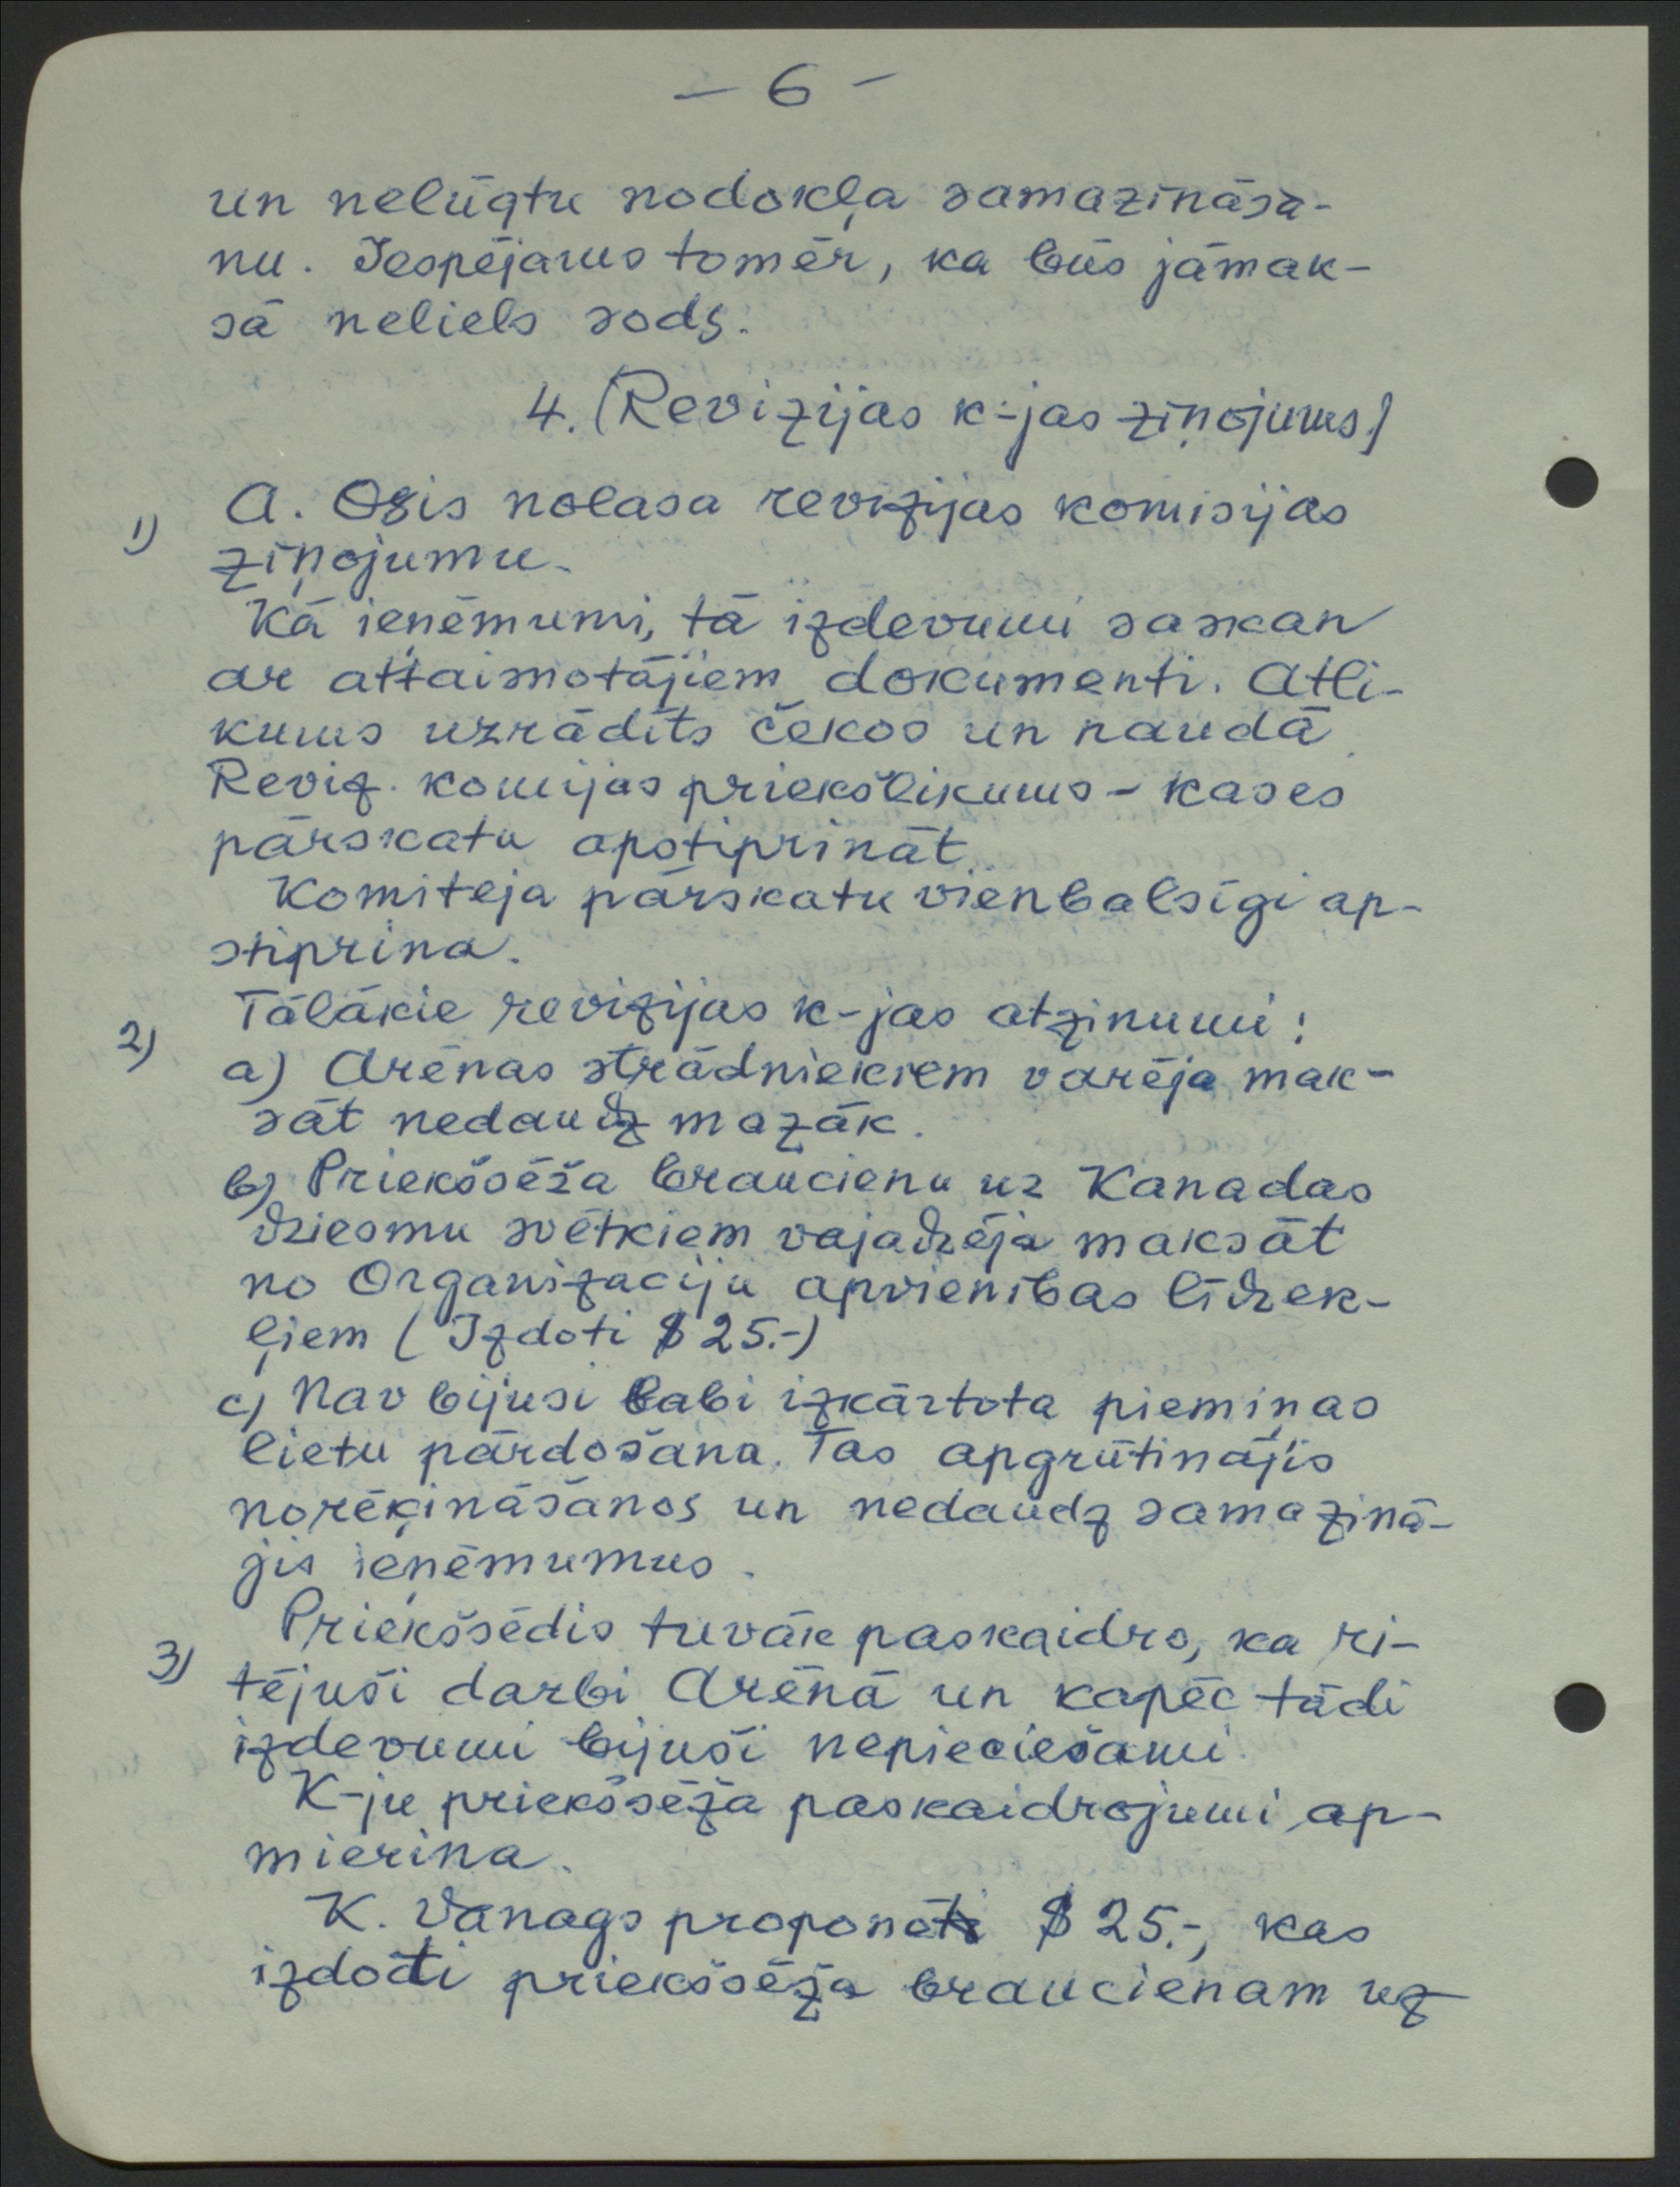 - 6 -
un nelūgtu nodokļa samazināsa-
nu. Iespējams tomēr, ka būs jāmak-
sā neliels sods.
4. (Revizijas k-jas ziņojums)
1) A. Osis nolasa revizijas komisijas
ziņojumu.
Kā ieņēmumi, tā izdevumi saskan
ar attaisnotājiem dokumenti. Atli-
kums uzrādīts čekos un naudā.
Reviz. komijas priekšlikums - kases
pārskatu apstiprināt.
Komiteja pārskatu vienbalsīgi ap-
stiprina.
2) Tālākie revizijas k-jas atzinumi:
a) Arēnas strādniekiem varēja mak-
sāt nedaudz mazāk.
b) Priekšsēža braucienu uz Kanadas
dziesmu svētkiem vajadzēja maksāt
no Organizaciju apvienības līdzek-
ļiem (Izdoti $ 25.-)
c) Nav bijusi labi izkārtota piemiņas
lietu pārdošana. Tas apgrūtinājis
norēķināšanos un nedaudz samazinā-
jis ieņēmumus.
3) Priekšsēdis tuvāk paskaidro, ka ri-
tējuši darbi Arēnā un kapēc tādi
izdevumi bijuši nepieciešami.
K-ju priekšsēža paskaidrojumi ap-
mierina.
K. Vanags proponē $ 25.-, kas
izdoti priekšsēža braucienam uz